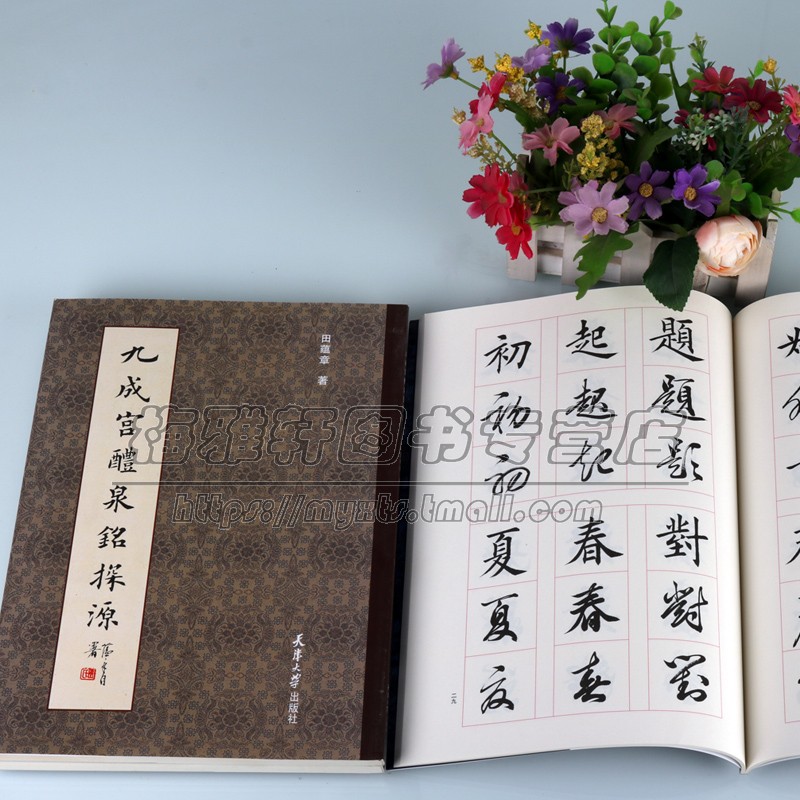 九成宫醴泉銘探源
田蕴章 著
天津大学出版社
梅雅轩图书专营店
https://myxts.tmall.com
題 起 初
題 起 初
題 起 初
對 春 夏
對 春 夏
對 春 夏
二九